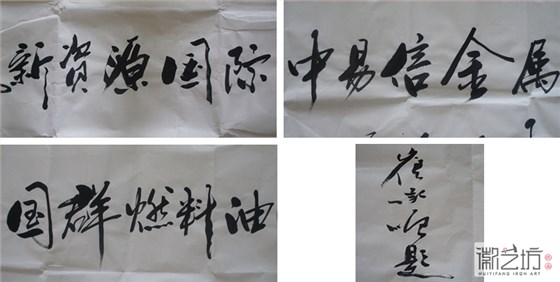 新资源国际
中易信金属
国群燃料油
题
徽艺坊
HUIYIFANG IRON ART